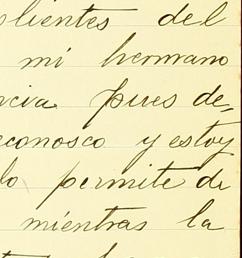 plientes del
mi hermano
ncia pues de=
econosco y estoy
lo permite de
mientras la